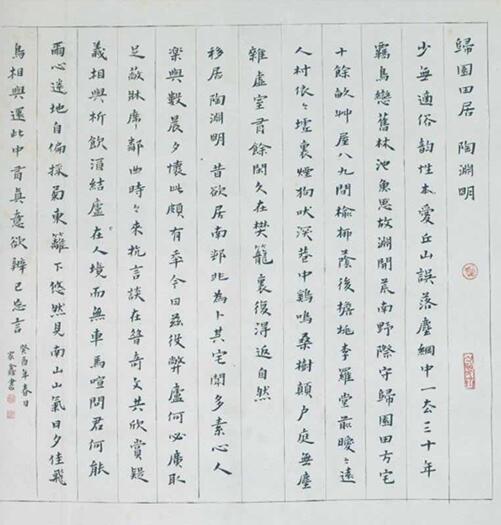 歸園田居 陶淵明
少無適俗韵性本愛丘山誤落塵網中一去三十年
羈鳥戀舊林池魚思故淵開荒南野際守歸園田方宅
十餘畝艸屋八九間榆柳蔭後檐桃李羅堂前曖〻遠
人村依〻墟裏煙狗吠深巷中鷄鳴桑樹顛户庭無塵
雜虛室有餘閑久在樊籠裏復得返自然
移居 陶淵明 昔欲居南邨非為卜其宅聞多素心人
樂與數晨夕懷此頗有年今日茲役弊廬何必廣取
足蔽牀席鄰曲時〻來抗言談在昔奇文共欣賞疑
義相與析飲酒結廬在人境而無車馬喧問君何能
爾心遠地自偏採菊東籬下悠然見南山山氣日夕佳飛
鳥相與還此中有真意欲辨已忘言
癸酉年春日
書